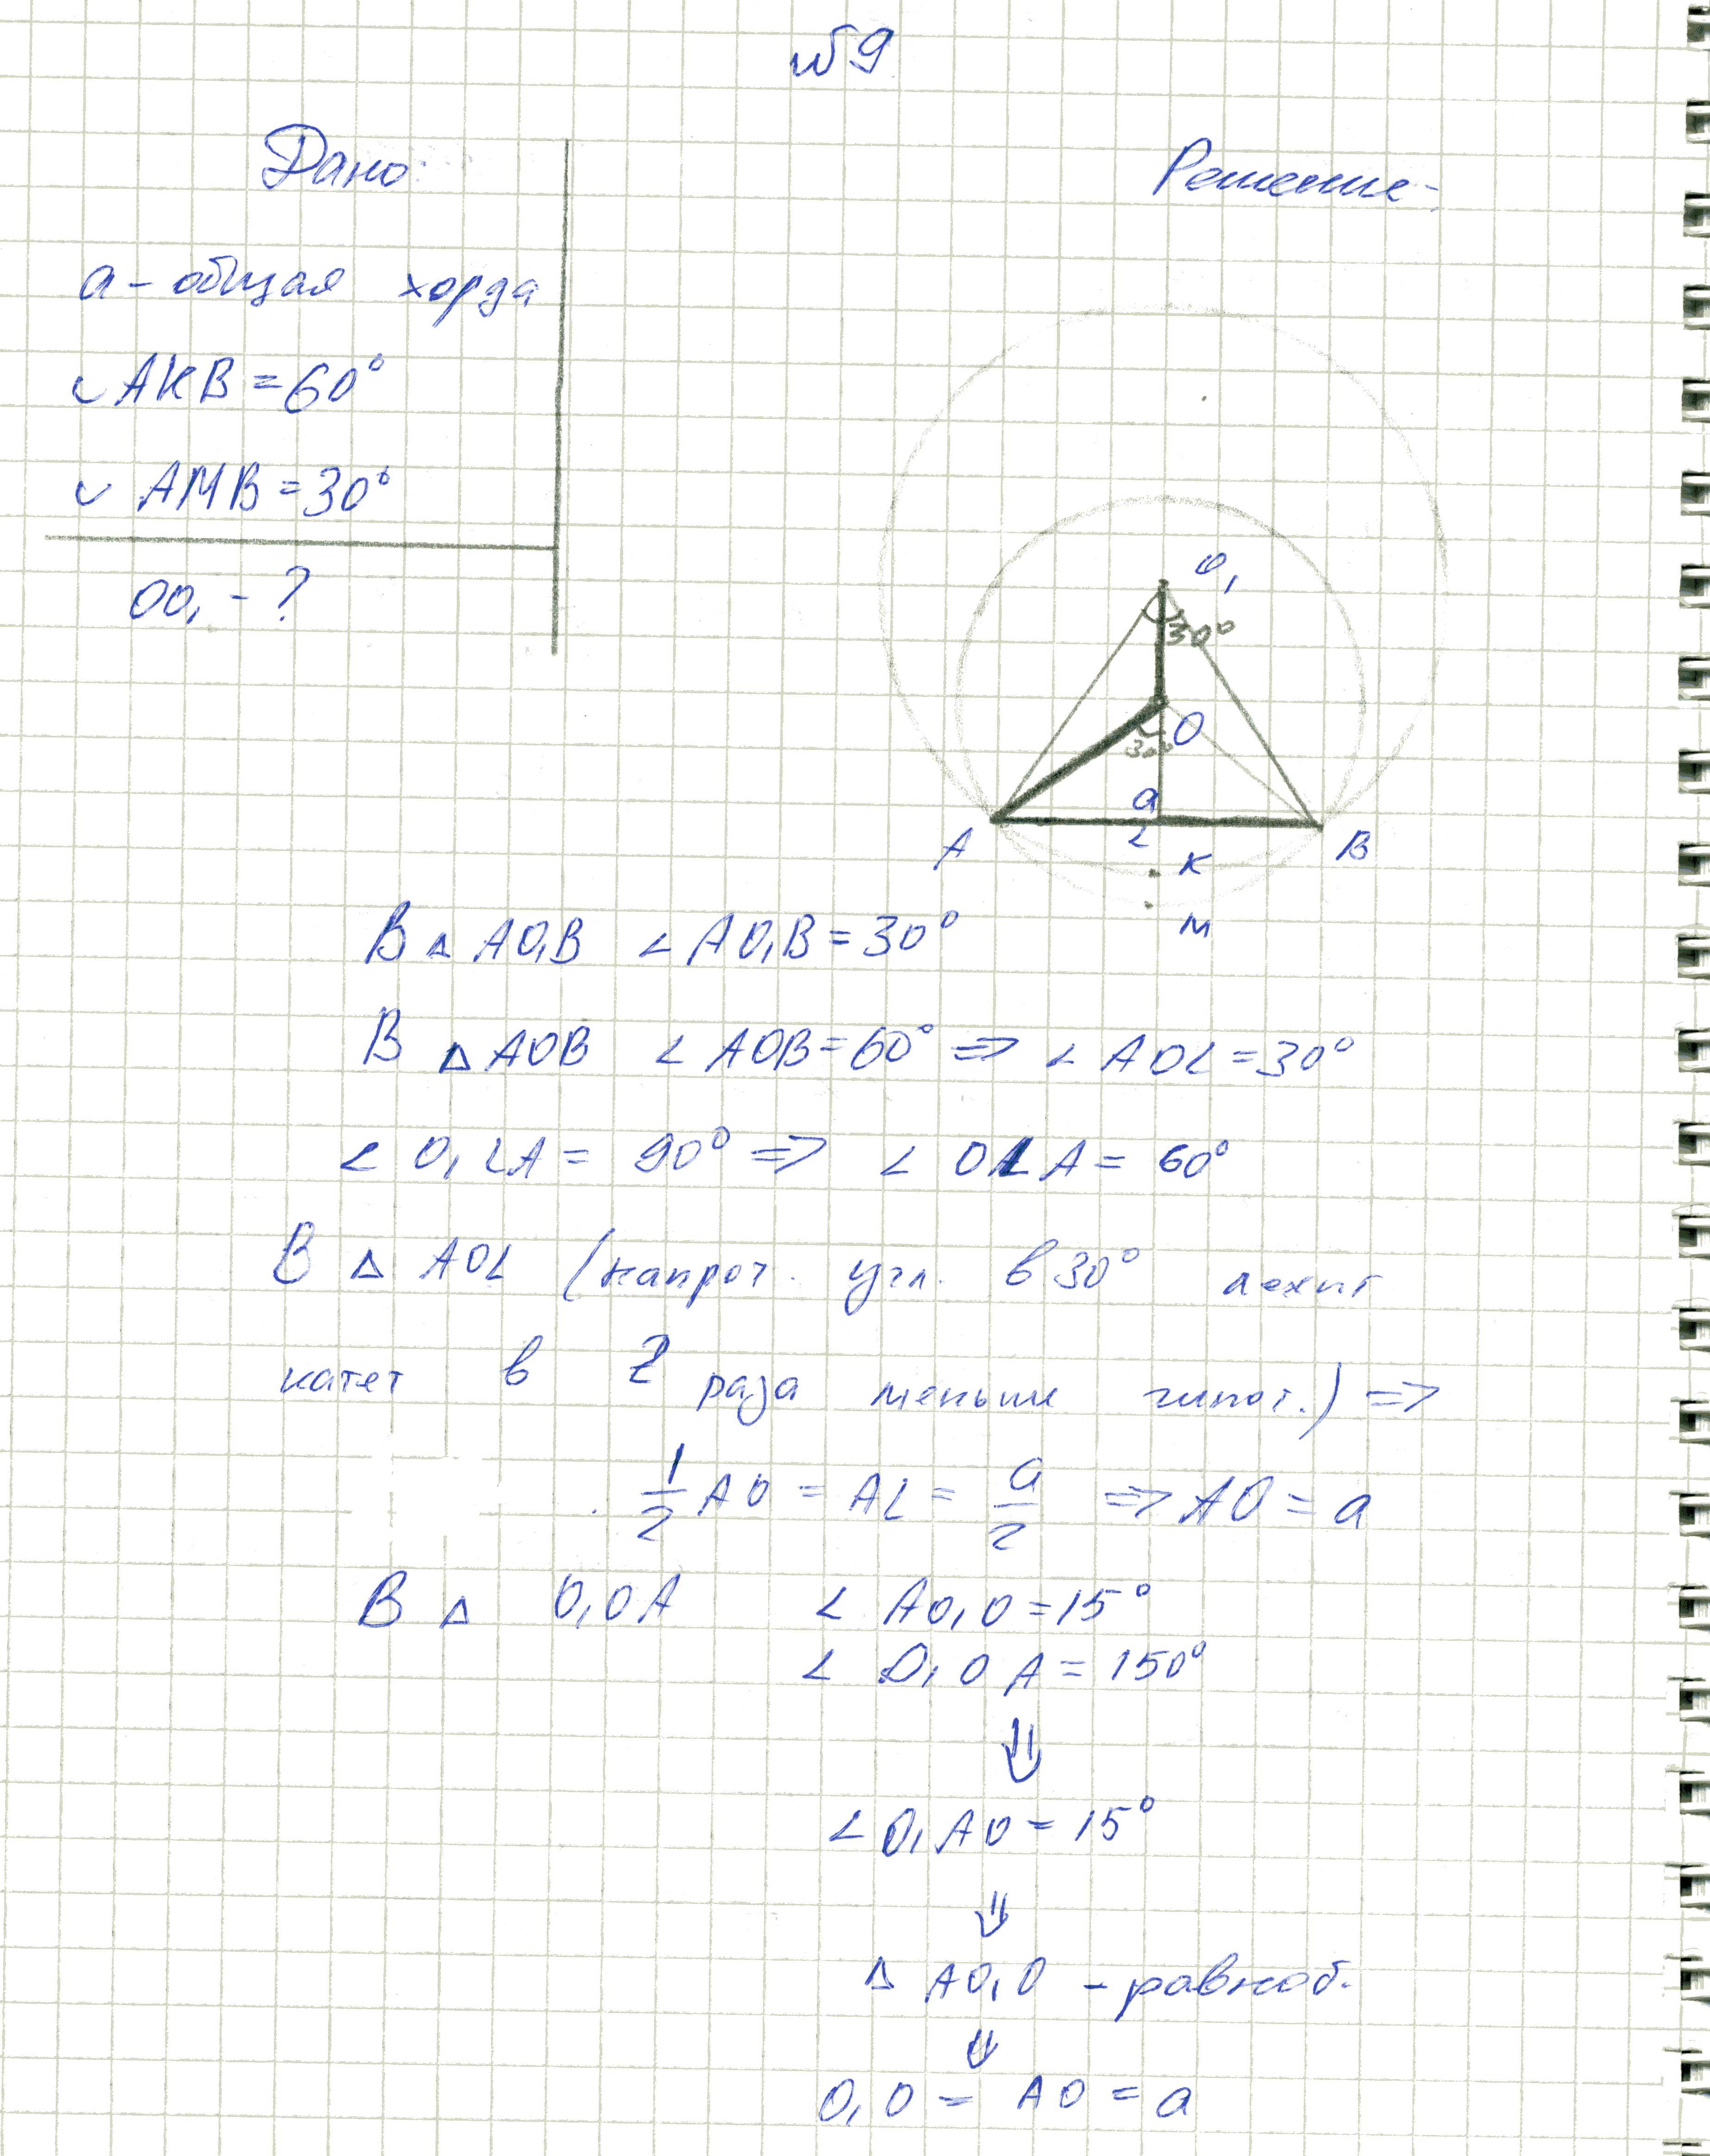 №9
Дано:
Решение:
a - общая хорда
◡AKB = 60°
◡ AMB = 30°
OO₁ - ?
O₁
30°
O
30°
a
L
A
B
K
M
В △ AO₁B ∠ AO₁B = 30°
В △ AOB ∠ AOB = 60° => ∠ AOL = 30°
∠ O₁LA = 90° => ∠ OLA = 60°
В △ AOL (напрот. угл. в 30° лежит
катет в 2 раза меньше гипот.) =>
1/2 AO = AL = a/2 => AO = a
В △ O₁OA ∠ AO₁O = 15°
∠ O₁OA = 150°
⇓
∠ O₁AO = 15°
⇓
△ AO₁O - равноб.
⇓
O₁O = AO = a